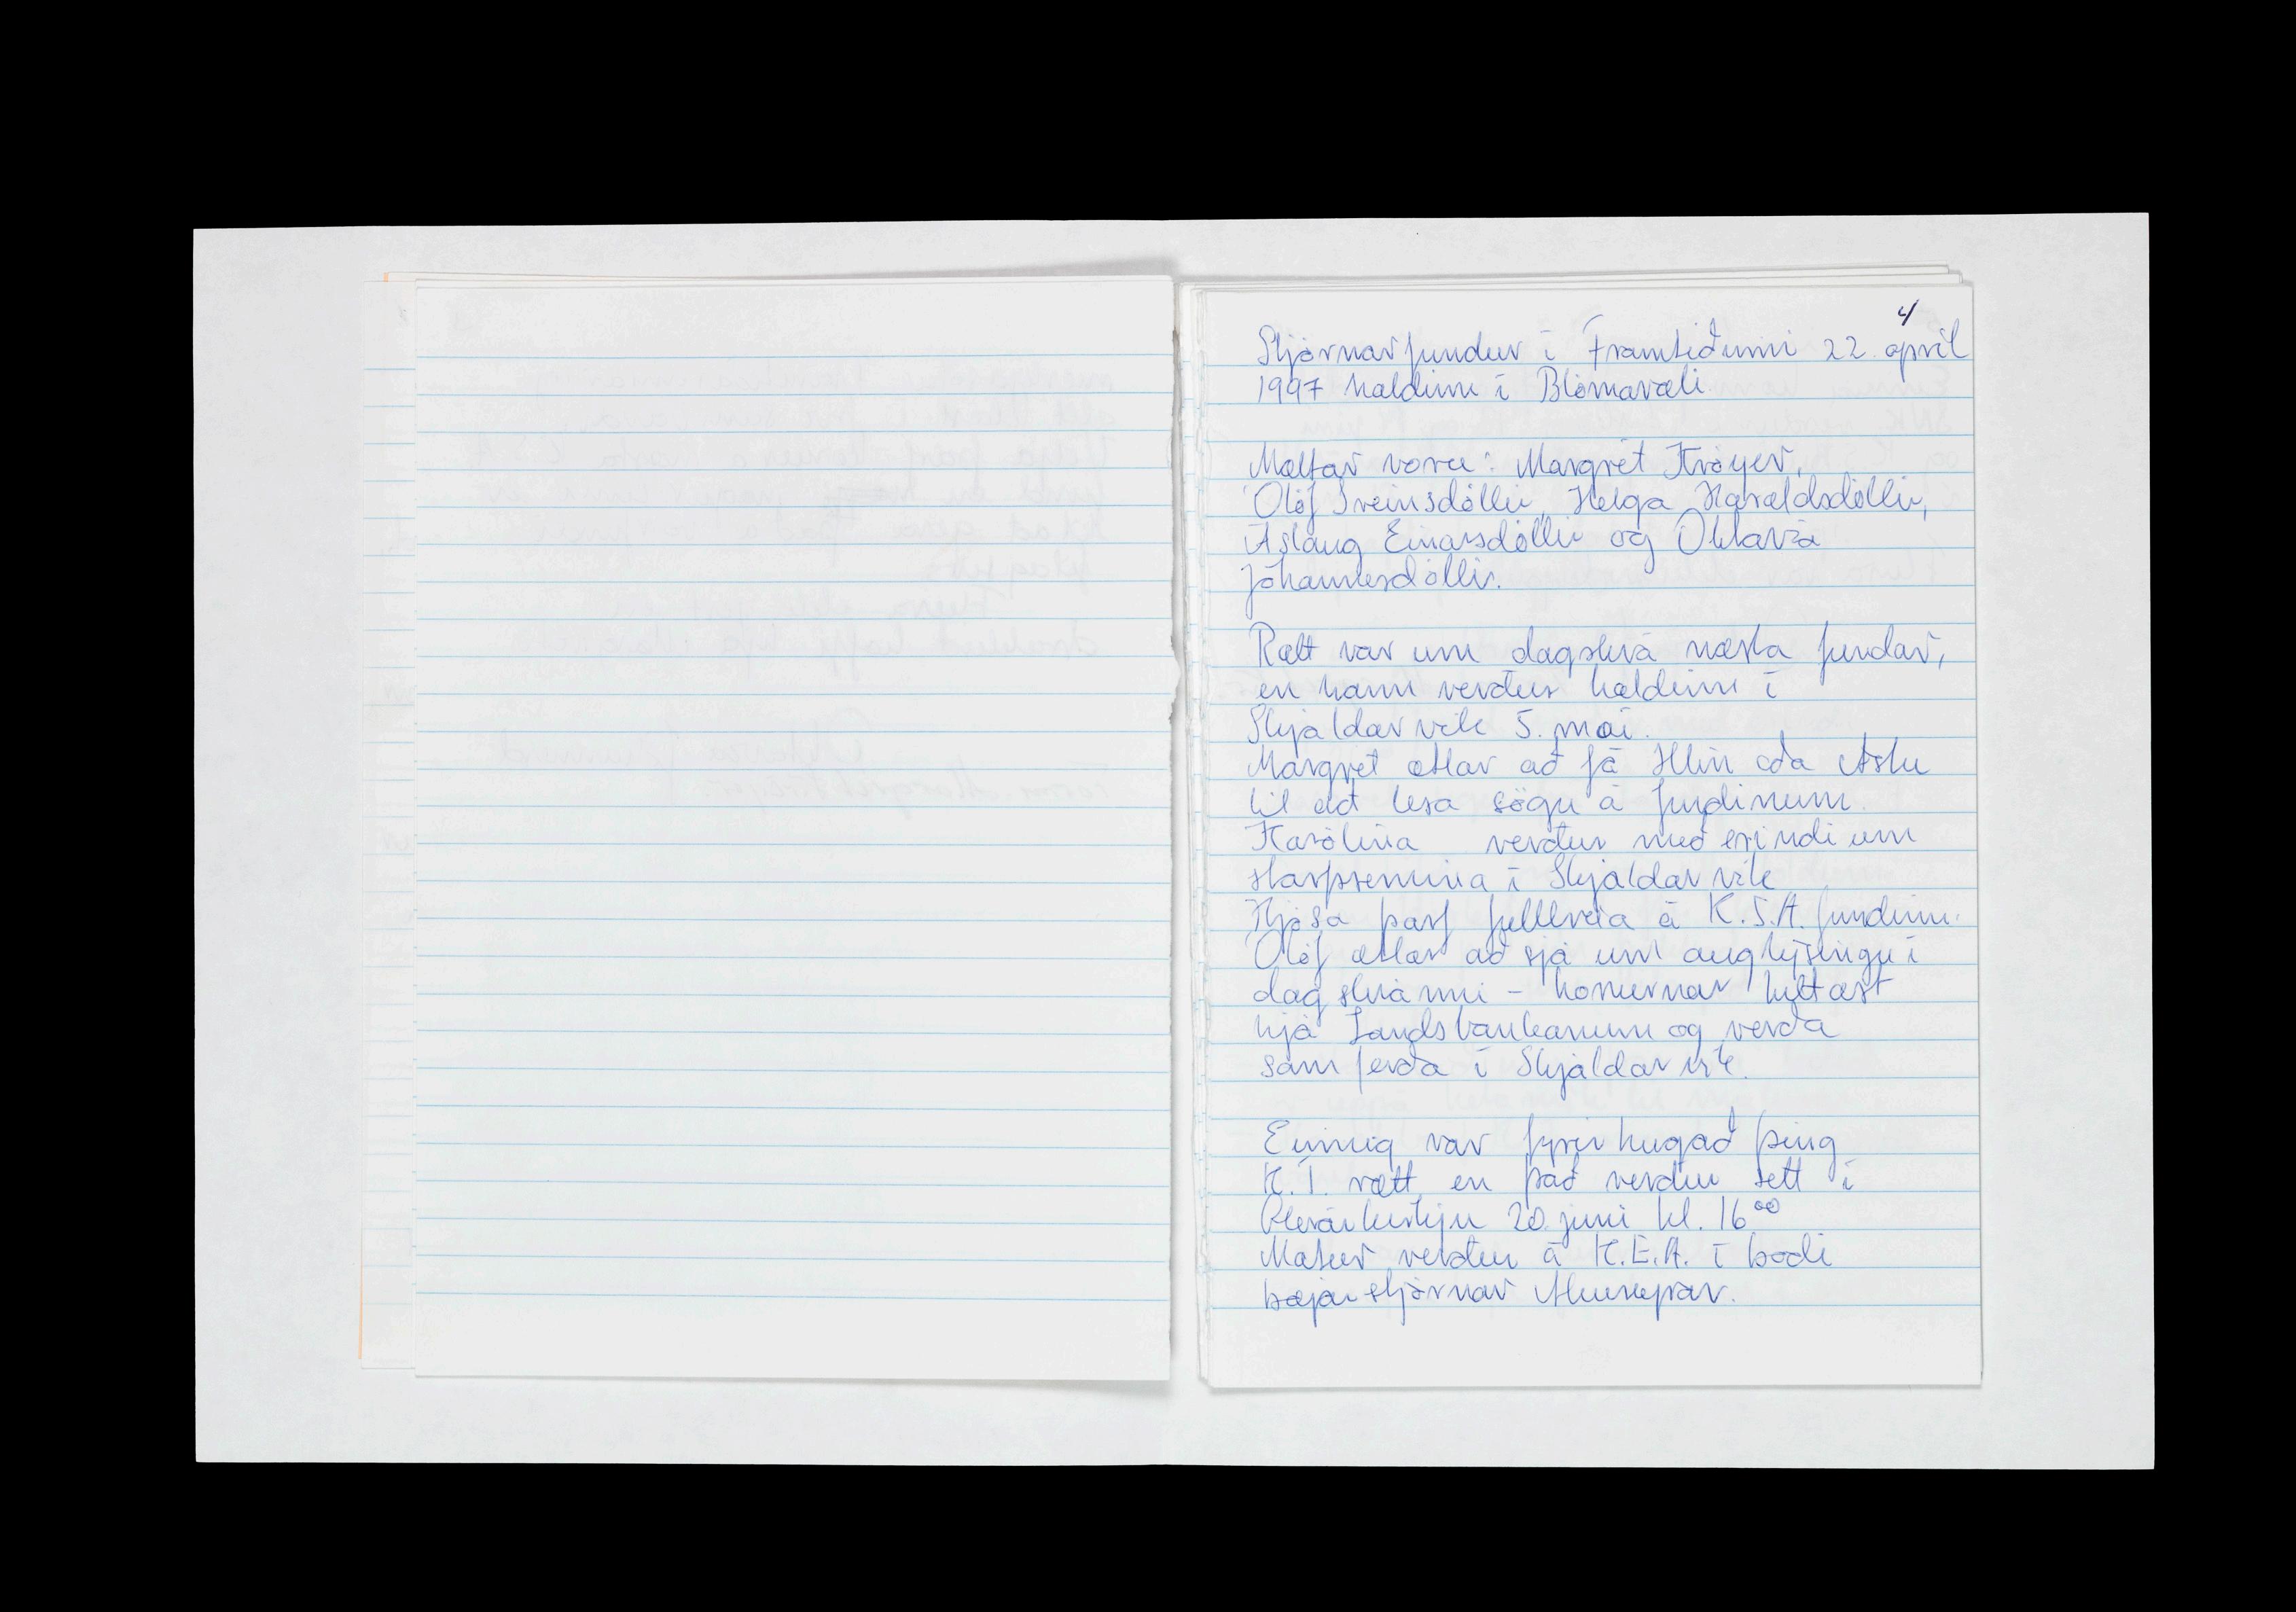 4
Stjórnarfundur í Framtíðinni 22. apríl
1997 haldinn í Blómavali.
Mættar voru: Margrét Kröyer,
Ólöf Sveinsdóttir, Helga Haraldsdóttir,
Áslaug Einarsdóttir og Oktavía
Jóhannesdóttir.
Rætt var um dagskrá næsta fundar,
en hann verður haldinn í
Skjaldarvík 5. maí.
Margrét ætlar að fá Hlín eða Ástu
til að lesa sögu á fundinum.
Karólína verður með erindi um
starfsemina í Skjaldarvík
Kjósa þarf fulltrúa á K.S.A. fundinn.
Ólöf ætlar að sjá um auglýsingu í
dagskránni - konurnar hittast
hjá Landsbankanum og verða
samferða í Skjaldarvík.
Einnig var fyrirhugað þing
K.Í. rætt en það verður sett í
Glerárkirkju 20. júní kl. 16⁰⁰
Matur verður á K.E.A. í boði
bæjarstjórnar Akureyrar.